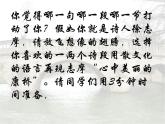 你觉得哪一句或哪一节最打
动了你？假如你是诗人徐志
摩，请放飞想象的翅膀，选择
你喜欢的一个诗段用散文诗
的语言再现志摩“心中美丽的
康桥”。请同学们用3分钟时
间准备。